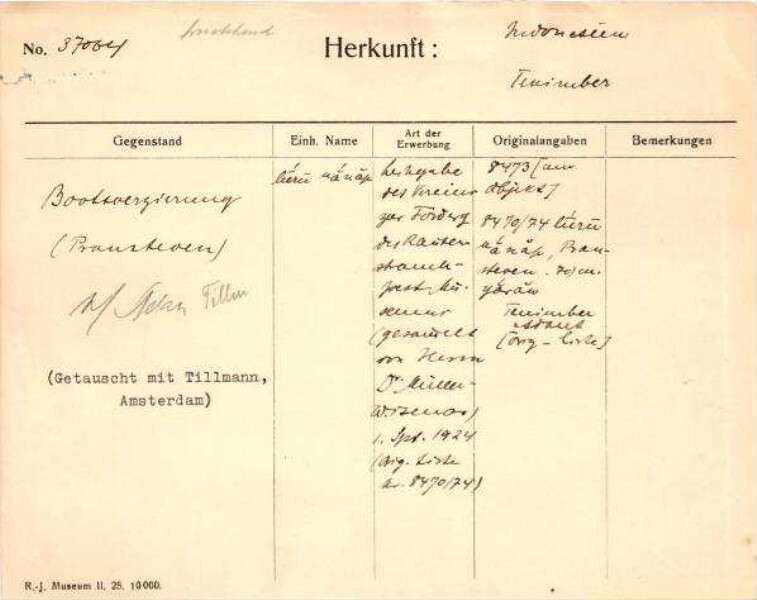 No. 37064
Herkunft:
Indonesien
Tenimber
Gegenstand
Einh. Name
Art der
Erwerbung
Originalangaben
Bemerkungen
Bootsverzierung
(Prausteven)
Tillm
(Getauscht mit Tillmann,
Amsterdam)
lúru
Leihgabe
des Vereins
zur Förderg
des Rauten
strauch-
Joest-Mu-
seums
(gesammelt
von Herrn
Dr. Müller-
Wismar)
1. Spt. 1924
(Orig. Liste
nr. 8470/74)
8473 [am
Objekt]
8470/74 lúru
Prau-
steven.
Tenimber
[Orig-Liste]
R.-J. Museum II. 25. 10000.